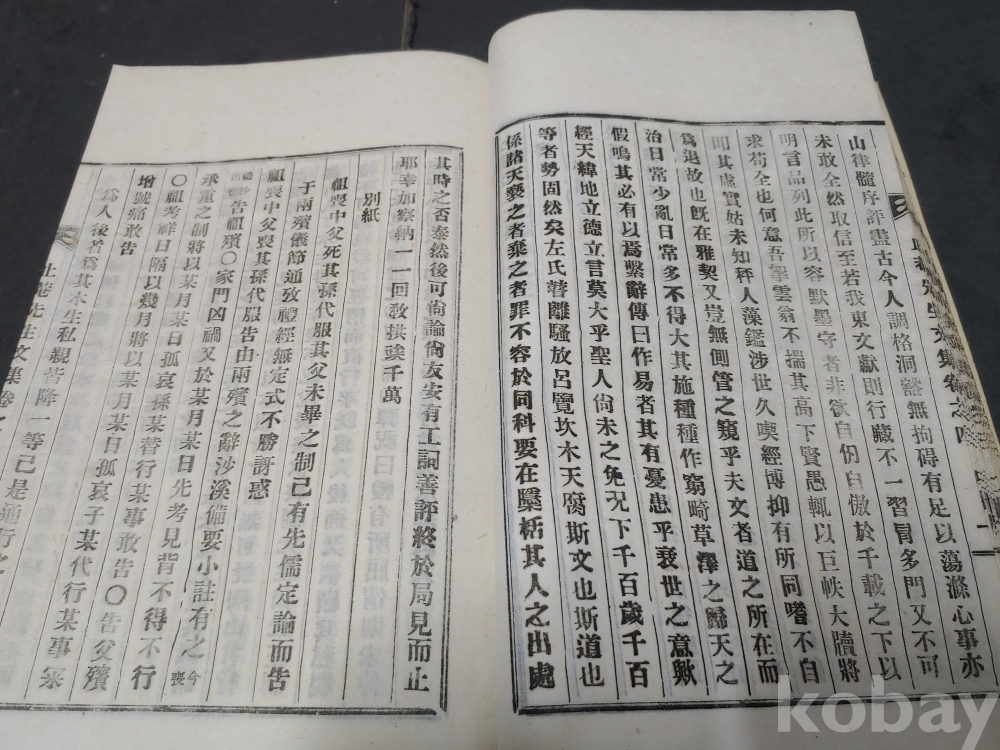 山律髓序評盡古今人調格洞豁無拘碍有足以蕩滌心事亦
未敢全然取信至若我東文獻則行藏不一習冒多門又不可
明言品列此所以容默墨守者非欲自份自傲於千載之下以
求苟全也何意吾掔雲翁不揣其高下賢愚輒以巨帙大牘將
叩其虛實姑未知秤人藻鑑涉世久喫經傳抑有所同嗜不自
爲退故也旣在雅契又豈無側管之窺乎夫文者道之所在而
治日常少亂日常多不得大其施種種作窮畸草澤之歸天之
假鳴其必有以焉繫辭傳曰作易者其有憂患乎衰世之意歟
經天緯地立德立言莫大乎聖人尙未之免况下千百歲千百
等者勢固然矣左氏離騷放呂覽坎木天腐斯文也斯道也
係諸天褻之者棄之者罪不容於同科要在櫽栝其人之出處
先生文集卷之四
其時之否泰然後可尙論尙友安有工詞善評終於局見而止
耶幸加察納一一回敎拱竢千萬
別紙
祖喪中父死其孫代服其父未畢之制已有先儒定論而告
于兩殯儀節通攷禮經無定式不勝訝惑
祖喪中父喪其孫代服告由兩殯之辭沙溪備要小註有之今喪
告祖殯〇家門凶禍又於某月某日先考見背不得不行
承重之制將以某月某日孤哀孫某替行某事敢告〇告父殯
〇祖考祥日隔以幾月將以某月某日孤哀子某代行某事冞
增號痛敢告
爲人後者爲其本生私親皆降一等己是通行之
止菴先生文集卷之